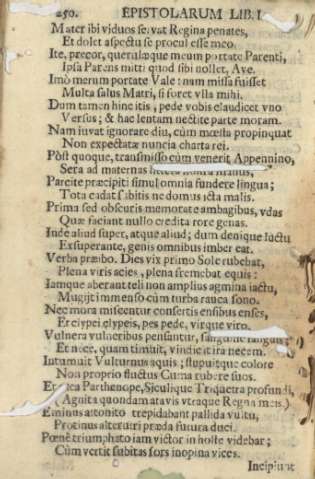 250. EPISTOLARUM LIB. I.
Mater ibi viduos servat Regina penates,
Et dolet aspectu se procul esse meo.
Ite, precor, querulæque meum portate Parenti,
Ipsa Parens mitti quod sibi nollet, Ave.
Imò merum portate Vale: nam missa fuisset
Multa salus Matri, si foret vlla mihi.
Dum tamen hinc itis, pede vobis claudicet vno
Versus; & hac lentam nectite parte moram.
Nam iuvat ignorare diu, cùm mœsta propinquat
Non expectatæ nuncia charta rei.
Pòst quoque, transmisso cùm venerit Appennino,
Sera ad maternas
Parcite præcipiti simul omnia fundere lingua;
Tota cadat subitis ne domus icta malis.
Prima sed obscuris memorate ambagibus, vdas
Quæ faciant nullo credita rore genas.
Inde aliud super, atque aliud; dum denique luctu
Exsuperante, genis omnibus imber eat.
Verba præibo. Dies vix primo Sole rubebat,
Plena viris acies, plena fremebat equis:
Iamque aberant teli non amplius agmina iactu,
Mugijt immensò cùm turba rauca sono.
Nec mora miscentur consertis ensibus enses,
Et clypei clypeis, pes pede, virque viro.
Vulnera vulneribus pensantur, sanguine sanguis;
Et nece, quam timuit, vindicat ira necem.
Intumuit Vulturnus aquis; stupuitque colore
Non proprio fluctus Cuma rubere suos.
Et Parthenope, Siculique Triquetra profundi,
(Agnita quondam atavis vtraque Regna meis.)
Eminus attonito trepidabant pallida vultu,
Protinus alterutri præda futura duci.
Pœnè triumphato iam victor in hoste videbar;
Cùm vertit subitas sors inopina vices.
Incipiunt